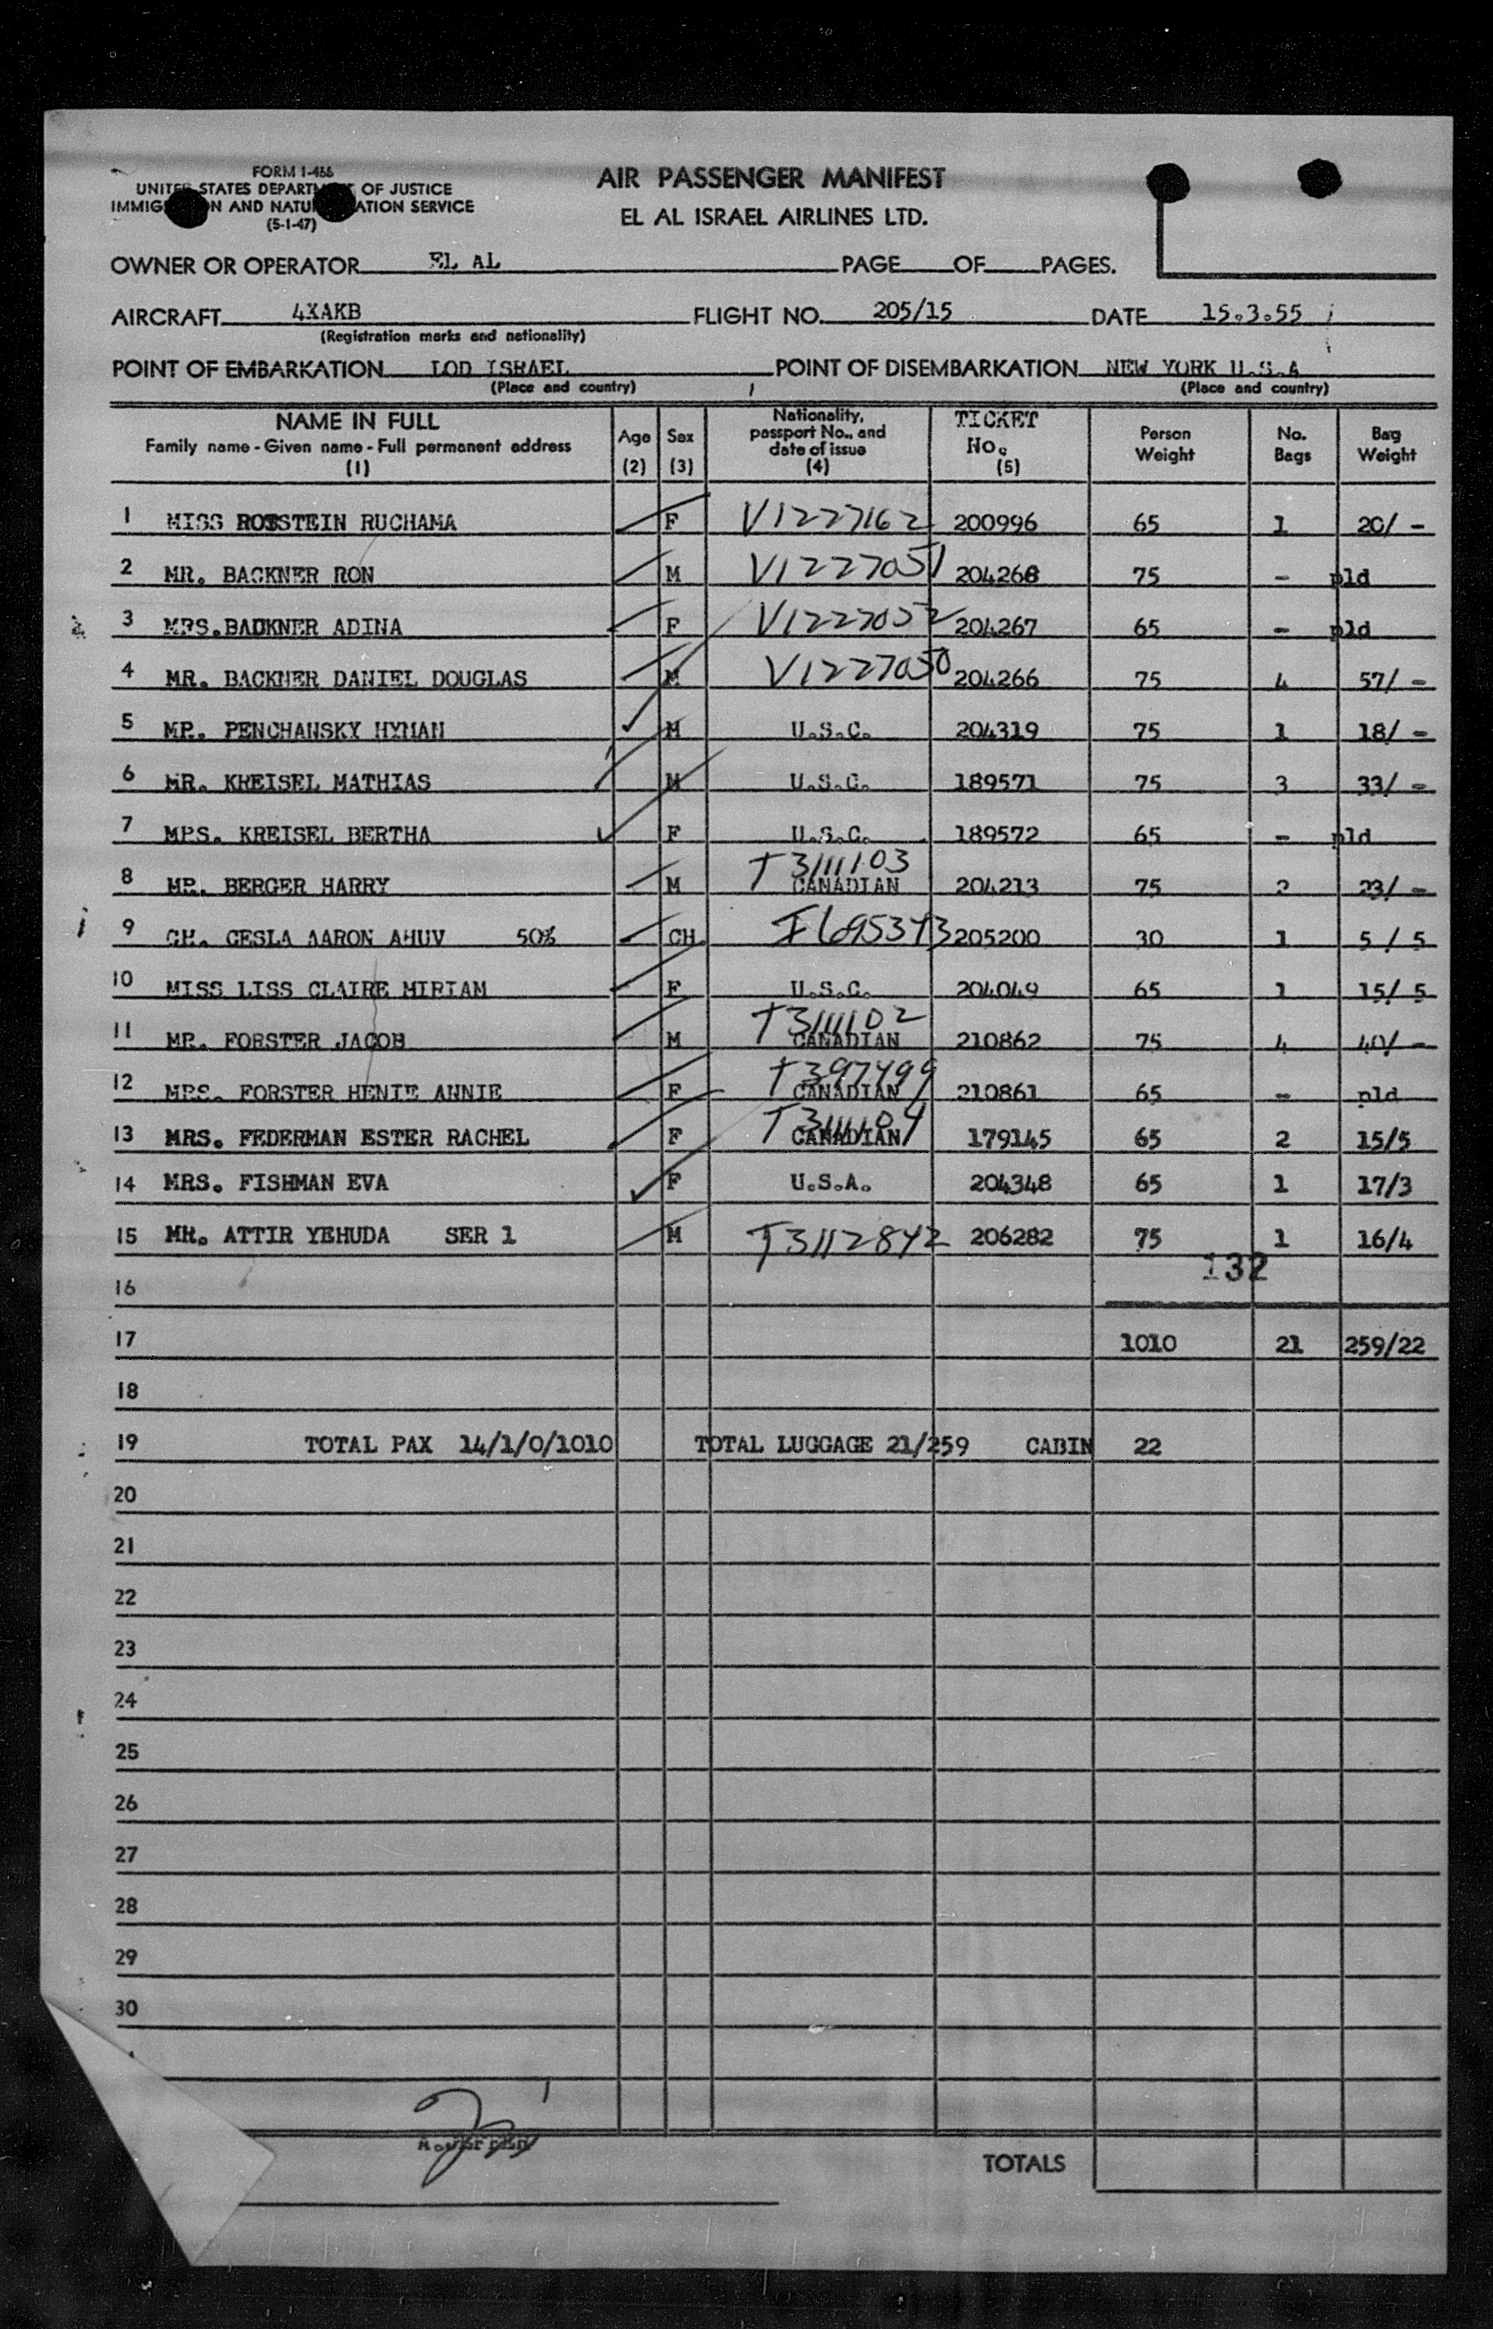 FORM I-466
UNITED STATES DEPARTMENT OF JUSTICE
IMMIGRATION AND NATURALIZATION SERVICE
(5-1-47)
AIR PASSENGER MANIFEST
EL AL ISRAEL AIRLINES LTD.
OWNER OR OPERATOR EL AL PAGE OF PAGES.
AIRCRAFT 4XAKB FLIGHT NO. 205/15 DATE 15.3.55
(Registration marks and nationality)
POINT OF EMBARKATION LOD ISRAEL POINT OF DISEMBARKATION NEW YORK U.S.A
(Place and country) (Place and country)
NAME IN FULL
Family name - Given name - Full permanent address
(1)
Age
(2)
Sex
(3)
Nationality,
passport No., and
date of issue
(4)
TICKET
No.
(5)
Person
Weight
No.
Bags
Bag
Weight
1 MISS ROTSTEIN RUCHAMA F V1227162 200996 65 1 20/ -
2 MR. BACKNER RON M V1227051 204268 75 - pld
3 MRS. BACKNER ADINA F V1227052 204267 65 - pld
4 MR. BACKNER DANIEL DOUGLAS M V1227050 204266 75 4 57/ -
5 MR. PENCHANSKY HYMAN M U.S.C. 204319 75 1 18/ -
6 MR. KREISEL MATHIAS M U.S.C. 189571 75 3 33/ -
7 MRS. KREISEL BERTHA F U.S.C. 189572 65 - pld
8 MR. BERGER HARRY M T3111103 CANADIAN 204213 75 2 23/ -
9 CH. CESLA AARON AHUV 50% CH. I695343 205200 30 1 5 / 5
10 MISS LISS CLAIRE MIRIAM F U.S.C. 204049 65 1 15/ 5
11 MR. FORSTER JACOB M T3111102 CANADIAN 210862 75 4 40/ -
12 MRS. FORSTER HENIE ANNIE F T397499 CANADIAN 210861 65 - pld
13 MRS. FEDERMAN ESTER RACHEL F T3111104 CANADIAN 179145 65 2 15/5
14 MRS. FISHMAN EVA F U.S.A. 204348 65 1 17/3
15 MR. ATTIR YEHUDA SER 1 M T3112842 206282 75 1 16/4
132
16
17 1010 21 259/22
18
19 TOTAL PAX 14/1/0/1010 TOTAL LUGGAGE 21/259 CABIN 22
20
21
22
23
24
25
26
27
28
29
30
TOTALS